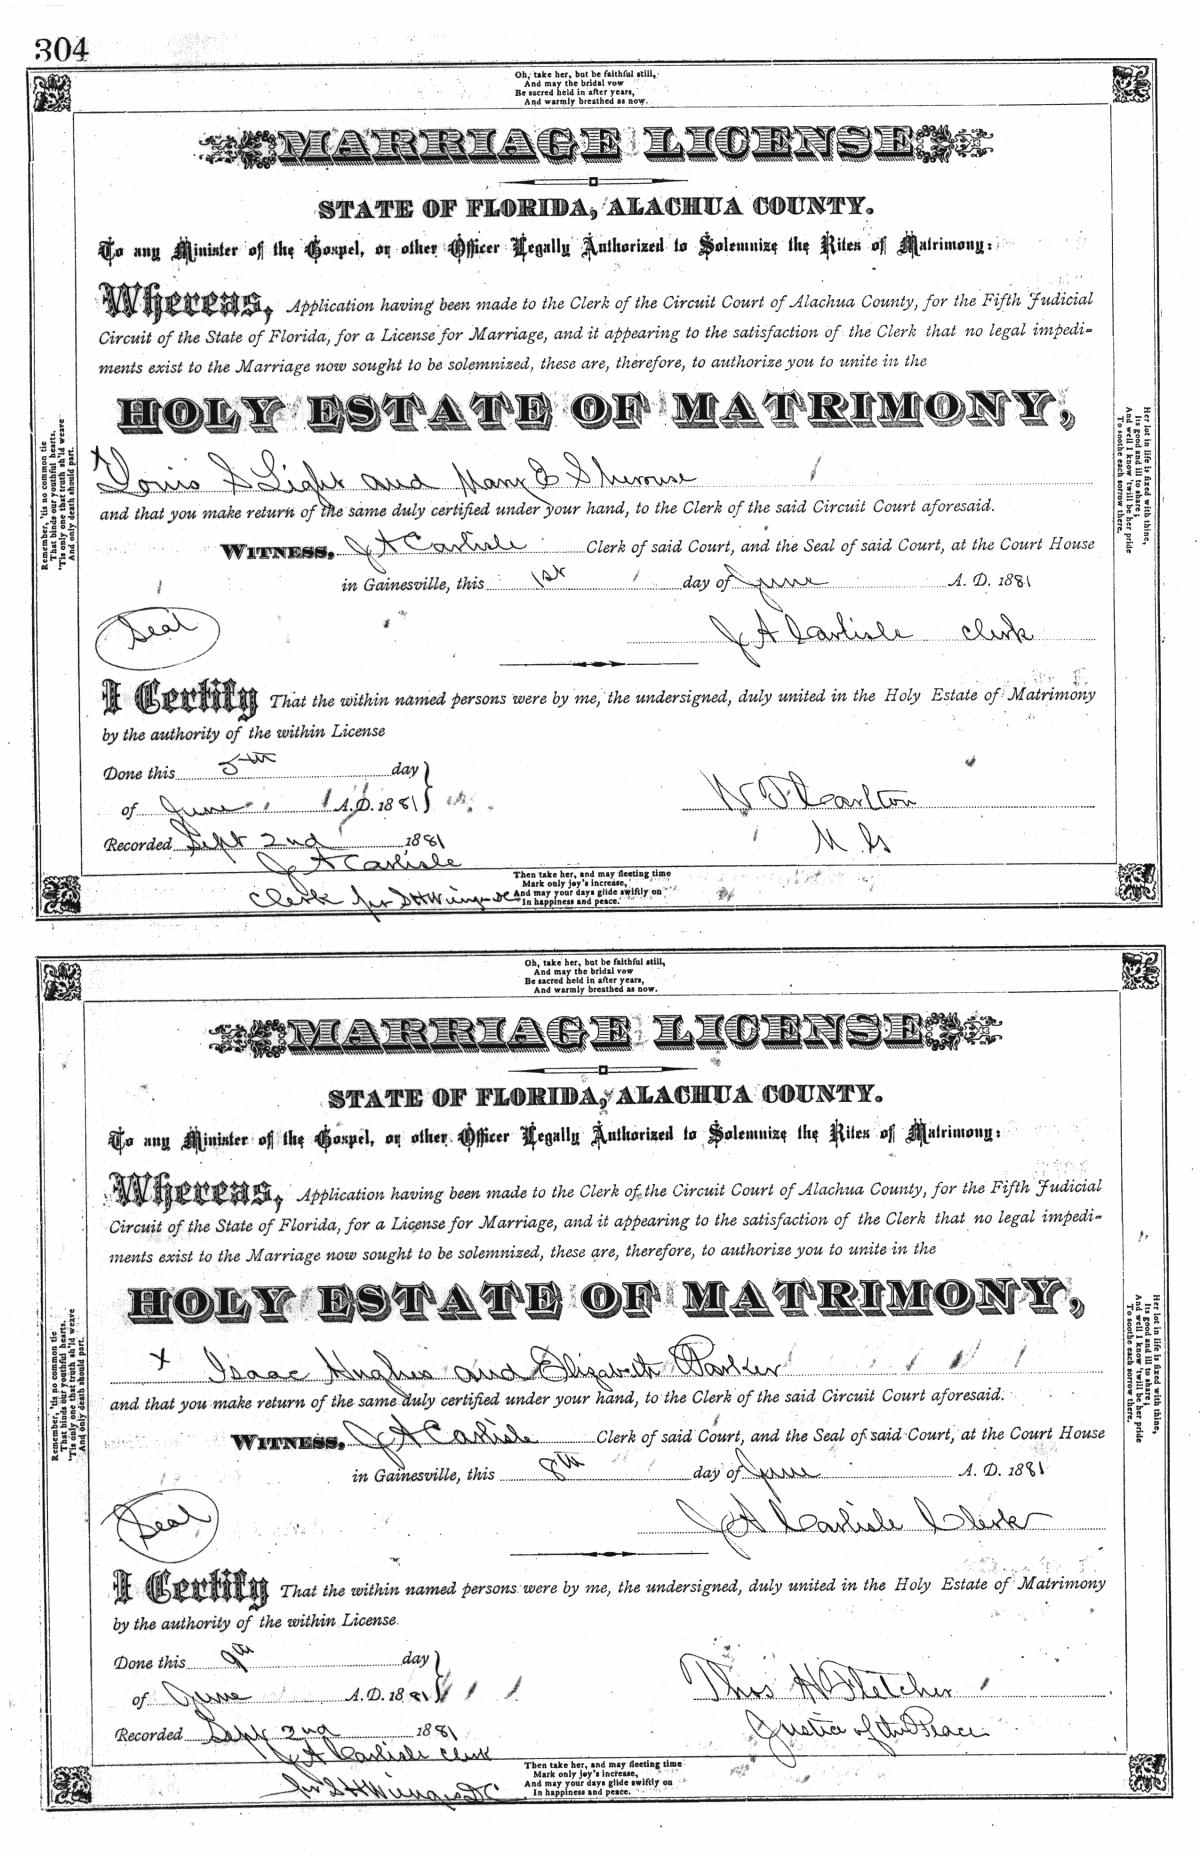 304
Oh, take her, but be faithful still,
And may the bridal vow
Be sacred held in after years,
And warmly breathed as now.
MARRIAGE LICENSE
STATE OF FLORIDA, ALACHUA COUNTY.
To any Minister of the Gospel, or other Officer Legally Authorized to Solemnize the Rites of Matrimony:
Whereas, Application having been made to the Clerk of the Circuit Court of Alachua County, for the Fifth Judicial
Circuit of the State of Florida, for a License for Marriage, and it appearing to the satisfaction of the Clerk that no legal impedi-
ments exist to the Marriage now sought to be solemnized, these are, therefore, to authorize you to unite in the
HOLY ESTATE OF MATRIMONY,
x Louis S Light and Mary E Sherouse
and that you make return of the same duly certified under your hand, to the Clerk of the said Circuit Court aforesaid.
WITNESS, J A Carlisle Clerk of said Court, and the Seal of said Court, at the Court House
in Gainesville, this 1st day of June A. D. 1881
Seal
J A Carlisle Clerk
I Certify That the within named persons were by me, the undersigned, duly united in the Holy Estate of Matrimony
by the authority of the within License
Done this 5th day
of June A.D. 1881
W F Carlton
Recorded Sept 2nd 1881
M G
J A Carlisle
Clerk pr S H Wienges DC
Then take her, and may fleeting time
Mark only joy's increase,
And may your days glide swiftly on
In happiness and peace.
Remember, 'tis no common tie
That binds our youthful hearts,
'Tis only one that truth sh'ld weave
And only death should part.
Her lot in life is fixed with thine,
Its good and ill to share;
And well I know 'twill be her pride
To soothe each sorrow there.
Oh, take her, but be faithful still,
And may the bridal vow
Be sacred held in after years,
And warmly breathed as now.
MARRIAGE LICENSE
STATE OF FLORIDA, ALACHUA COUNTY.
To any Minister of the Gospel, or other Officer Legally Authorized to Solemnize the Rites of Matrimony:
Whereas, Application having been made to the Clerk of the Circuit Court of Alachua County, for the Fifth Judicial
Circuit of the State of Florida, for a License for Marriage, and it appearing to the satisfaction of the Clerk that no legal impedi-
ments exist to the Marriage now sought to be solemnized, these are, therefore, to authorize you to unite in the
HOLY ESTATE OF MATRIMONY,
x Isaac Hughes and Elizabeth Parker
and that you make return of the same duly certified under your hand, to the Clerk of the said Circuit Court aforesaid.
WITNESS, J A Carlisle Clerk of said Court, and the Seal of said Court, at the Court House
in Gainesville, this 8th day of June A. D. 1881
Seal
J A Carlisle Clerk
I Certify That the within named persons were by me, the undersigned, duly united in the Holy Estate of Matrimony
by the authority of the within License.
Done this 9th day
of June A.D. 1881
Thos H Fletcher
Recorded Sept 2nd 1881
Justice of the Peace
J A Carlisle Clerk
pr S H Wienges DC
Then take her, and may fleeting time
Mark only joy's increase,
And may your days glide swiftly on
In happiness and peace.
Remember, 'tis no common tie
That binds our youthful hearts.
'Tis only one that truth sh'ld weave
And only death should part.
Her lot in life is fixed with thine,
Its good and ill to share;
And well I know 'twill be her pride
To soothe each sorrow there.